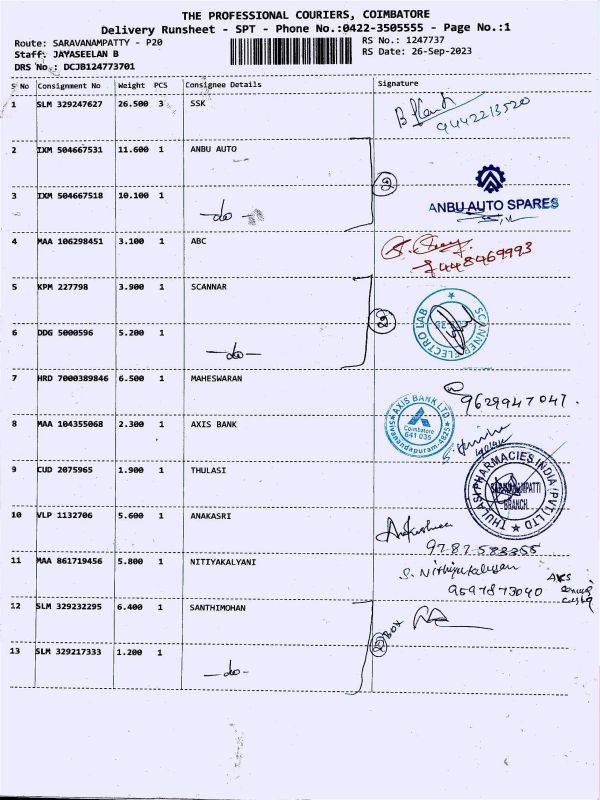 THE PROFESSIONAL COURIERS, COIMBATORE
Delivery Runsheet - SPT - Phone No.:0422-3505555 - Page No.:1
Route: SARAVANAMPATTY - P20
RS No.: 1247737
Staff: JAYASEELAN B
RS Date: 26-Sep-2023
DRS No.: DCJB124773701
S No Consignment No Weight PCS Consignee Details Signature
1 SLM 329247627 26.500 3 SSK
9442213520
2 IXM 504667531 11.600 1 ANBU AUTO
2
3 IXM 504667518 10.100 1 -do-
ANBU AUTO SPARES
4 MAA 106298451 3.100 1 ABC
7448469993
5 KPM 227798 3.900 1 SCANNAR
2
SCANNER ELECTRO LAB
6 DDG 5000596 5.200 1 -do-
7 HRD 7000389846 6.500 1 MAHESWARAN
9629947047.
8 MAA 104355068 2.300 1 AXIS BANK
AXIS BANK LTD
Coimbatore
641 035
Sivanandapuram
9 CUD 2075965 1.900 1 THULASI
THULASI PHARMACIES INDIA (PVT) LTD
SARAVANAMPATTI
BRANCH
10 VLP 1132706 5.600 1 ANAKASRI
9787583355
11 MAA 861719456 5.800 1 NITIYAKALYANI
S. Nithiyakalyani
9597873040
12 SLM 329232295 6.400 1 SANTHIMOHAN
2 BOX
13 SLM 329217333 1.200 1 -do-